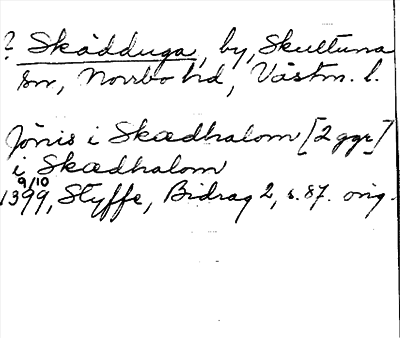 ? Skådduga, by, Skultuna
sn, Norrbo hd, Västm. l.
Jönis i Skædhalom [2 ggr]
i Skædhalom
9/10
1399, Styffe, Bidrag 2, s. 87. orig.